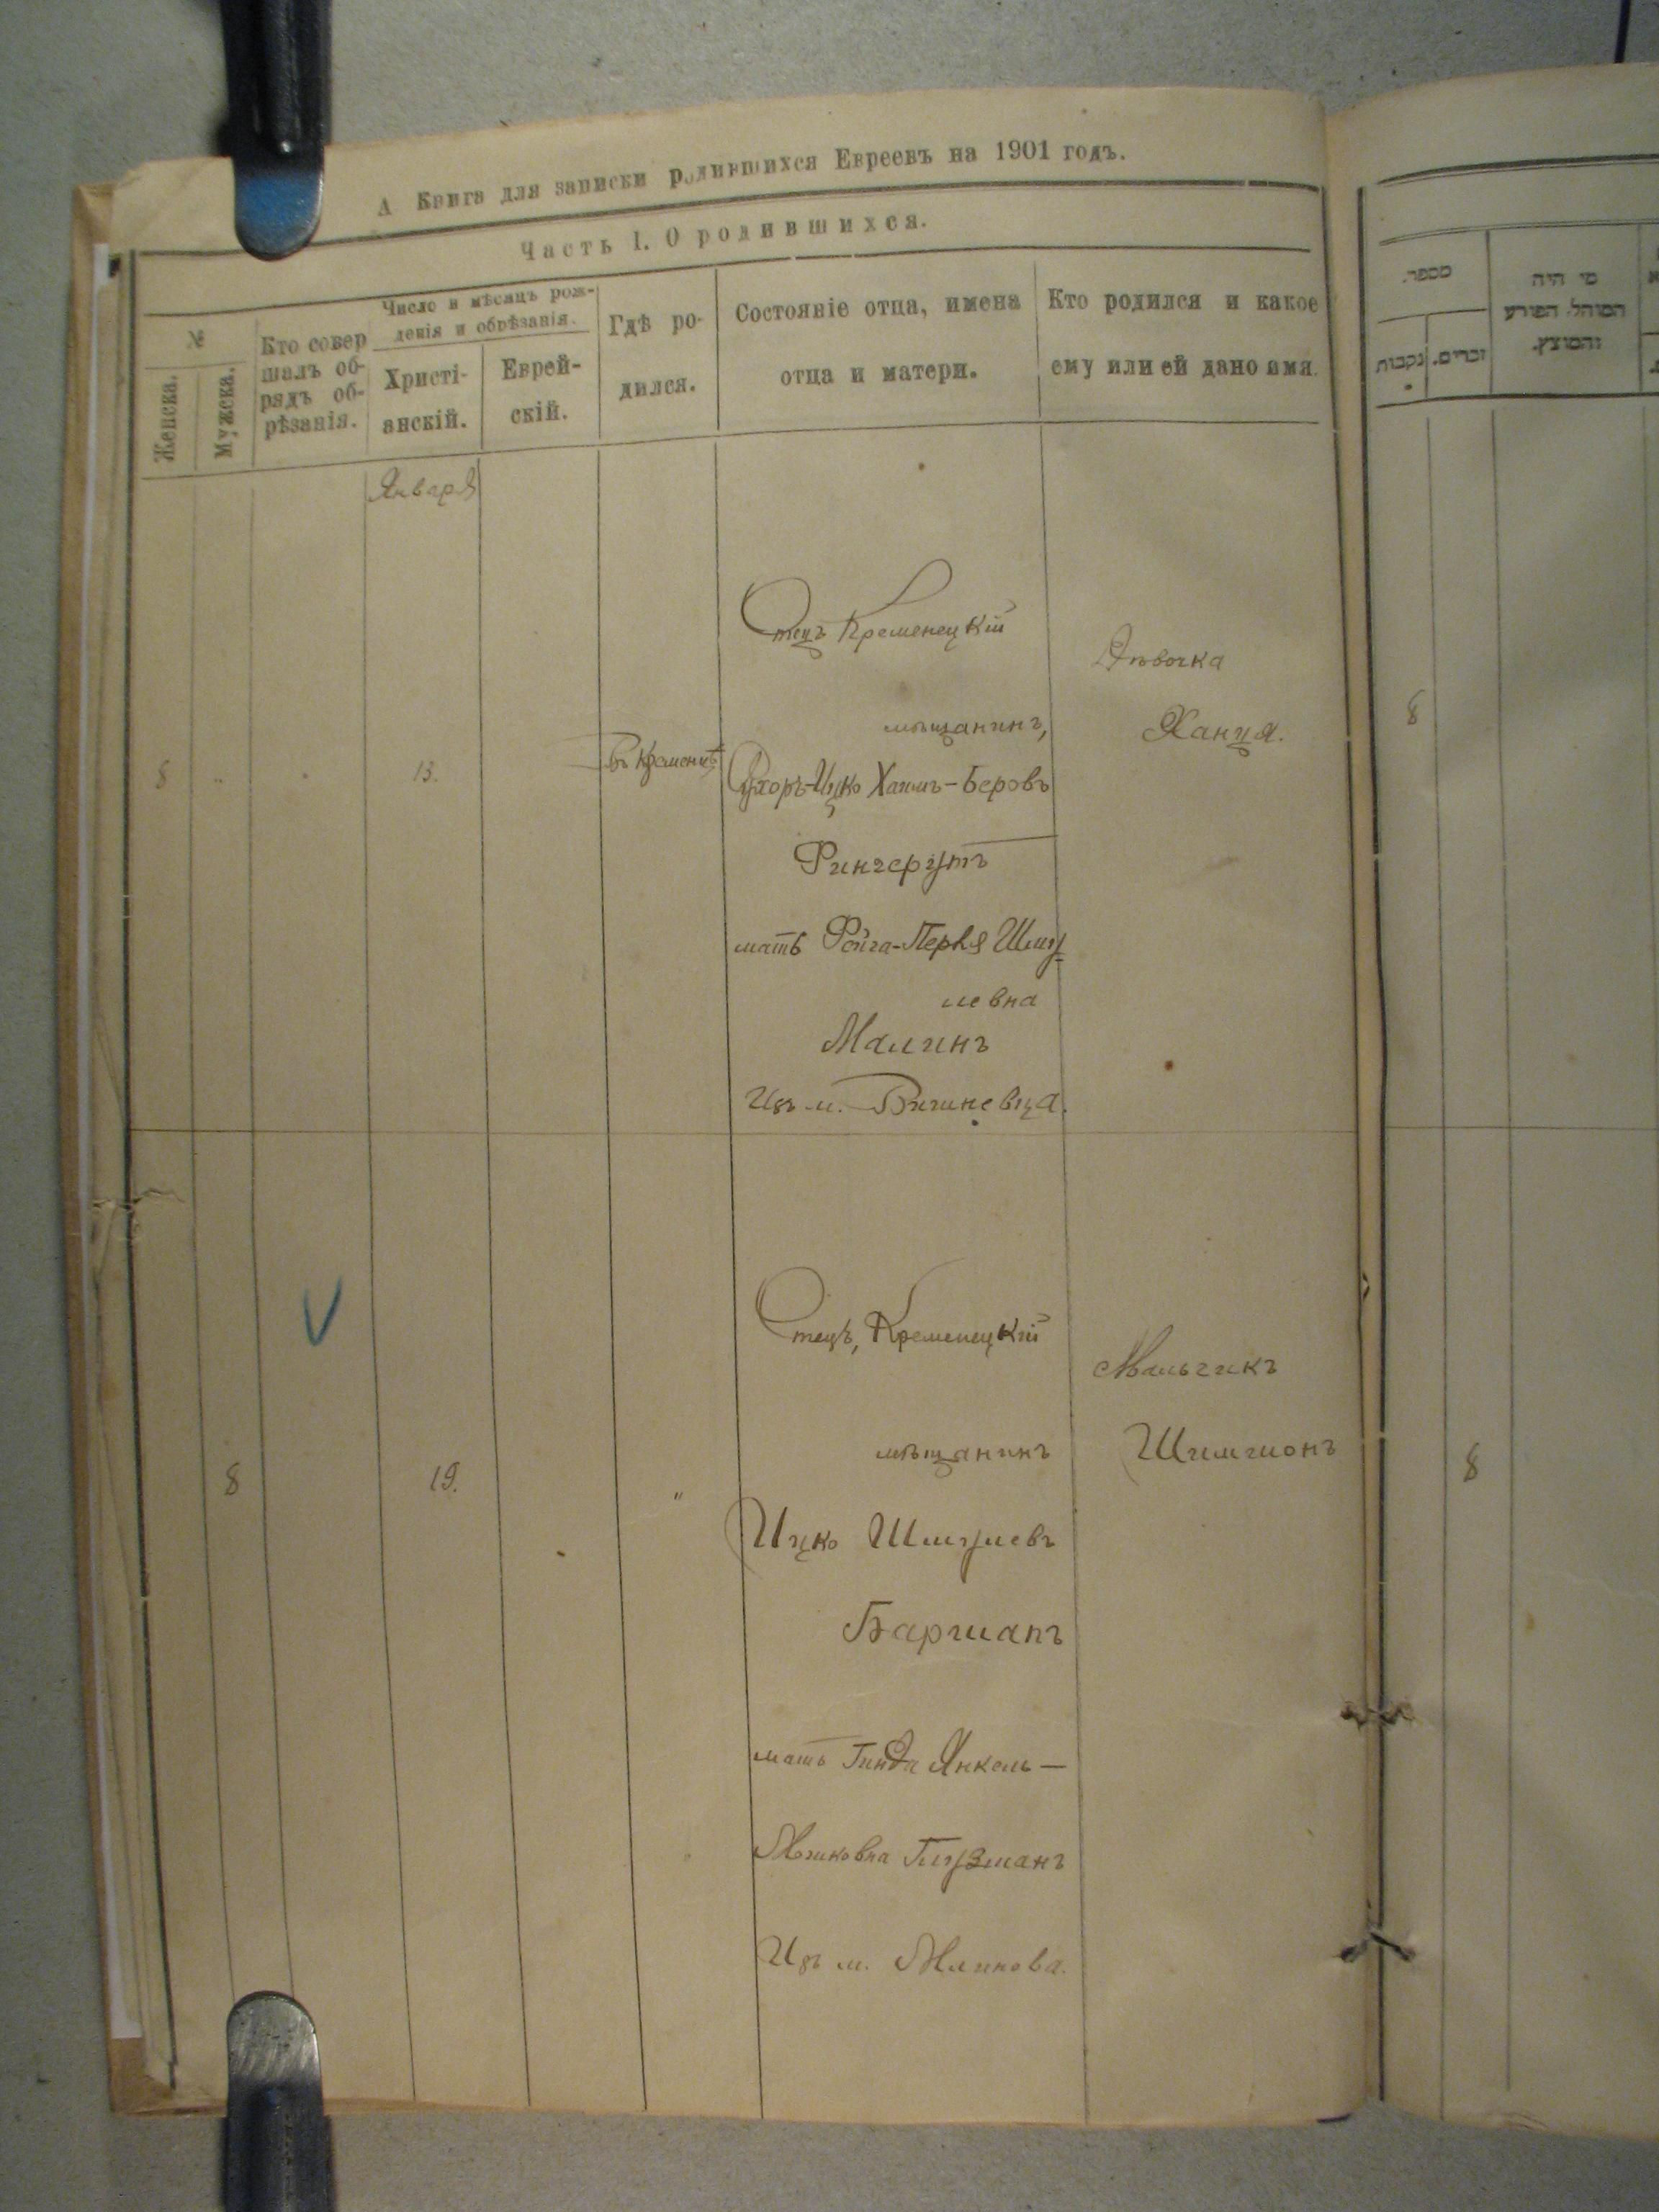 А Книга для записки родившихся Евреевъ на 1901 годъ.
Часть I. О родившихся.
№
Женска.
Мужска.
Кто совер
шалъ об-
рядъ об-
рѣзанія.
Число и мѣсяцъ рож-
денія и обрѣзанія.
Христі-
анскій.
Еврей-
скій.
Гдѣ ро-
дился.
Состояніе отца, имена
отца и матери.
Кто родился и какое
ему или ей дано имя.
Января
8
"
13.
въ Кременцѣ
Отецъ Кременецкій
мѣщанинъ,
Бухоръ-Ицко Хаимъ-Беровъ
Рингерутъ
мать Ройга-Перля Шму
левна
Малинъ
Изъ м. Вишневца.
Дѣвочка
Ханця.
8
19.
"
Отецъ, Кременецкій
мѣщанинъ
Ицко Шмулевъ
Баршапъ
мать Гинда Янкель-
Мошковна Глузманъ
Изъ м. Млинова.
Мальчикъ
Шимшонъ
מספר.
נקבות
זכרים.
מי היה
המוהל, הפורע
והמוצץ.
8
8